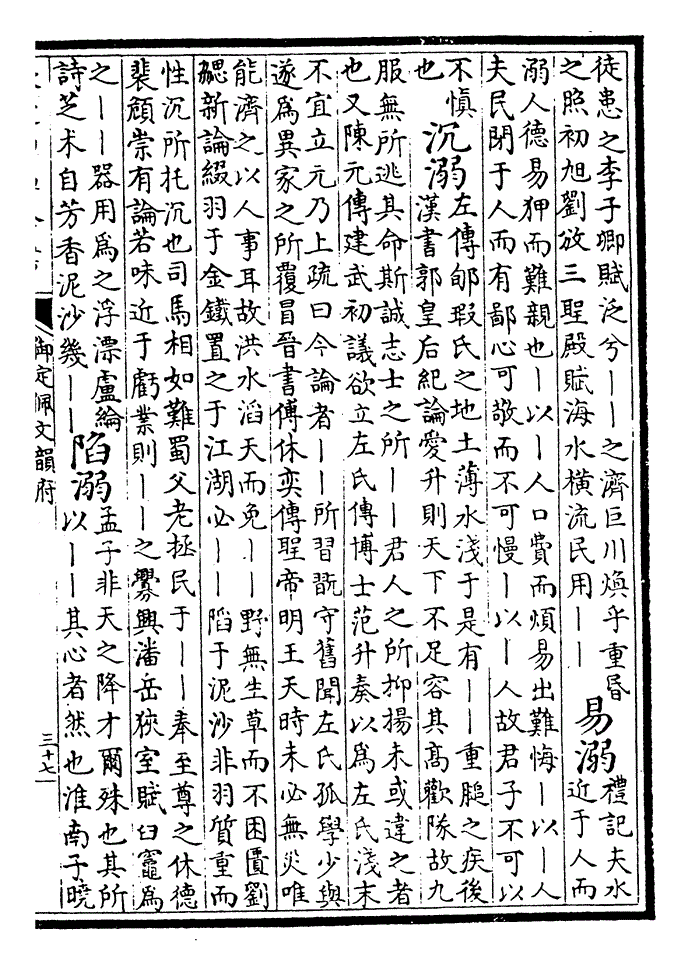 徒患之李子卿賦泛兮——之濟巨川煥乎重昏
之照初旭劉攽三聖殿賦海水横流民用——
易溺
禮記夫水
近于人而
溺人德易狎而難親也—以—人口費而煩易出難悔—以—人
夫民閉于人而有鄙心可敬而不可慢—以—人故君子不可以
不慎
也
沉溺
左傳郇瑕氏之地土薄水淺于是有——重膇之疾後
漢書郭皇后紀論愛升則天下不足容其高歡隊故九
服無所逃其命斯誠志士之所——君人之所抑揚未或違之者
也又陳元傳建武初議欲立左氏傳博士范升奏以為左氏淺末
不宜立元乃上疏曰今論者——所習翫守舊聞左氏孤學少與
遂為異家之所覆冒晉書傅休奕傳聖帝明王天時未必無災唯
能濟之以人事耳故洪水滔天而免——野無生草而不困匱劉
勰新論綴羽于金鐵置之于江湖必——陷于泥沙非羽質重而
性沉所托沉也司馬相如難蜀父老拯民于——奉至尊之休德
裴頠崇有論若味近于虧業則——之釁興潘岳狹室賦臼竈為
之——器用為之浮漂盧綸
詩芝术自芳香泥沙幾——
陷溺
孟子非天之降才爾殊也其所
以——其心者然也淮南子曉
御定佩文韻府
三十七